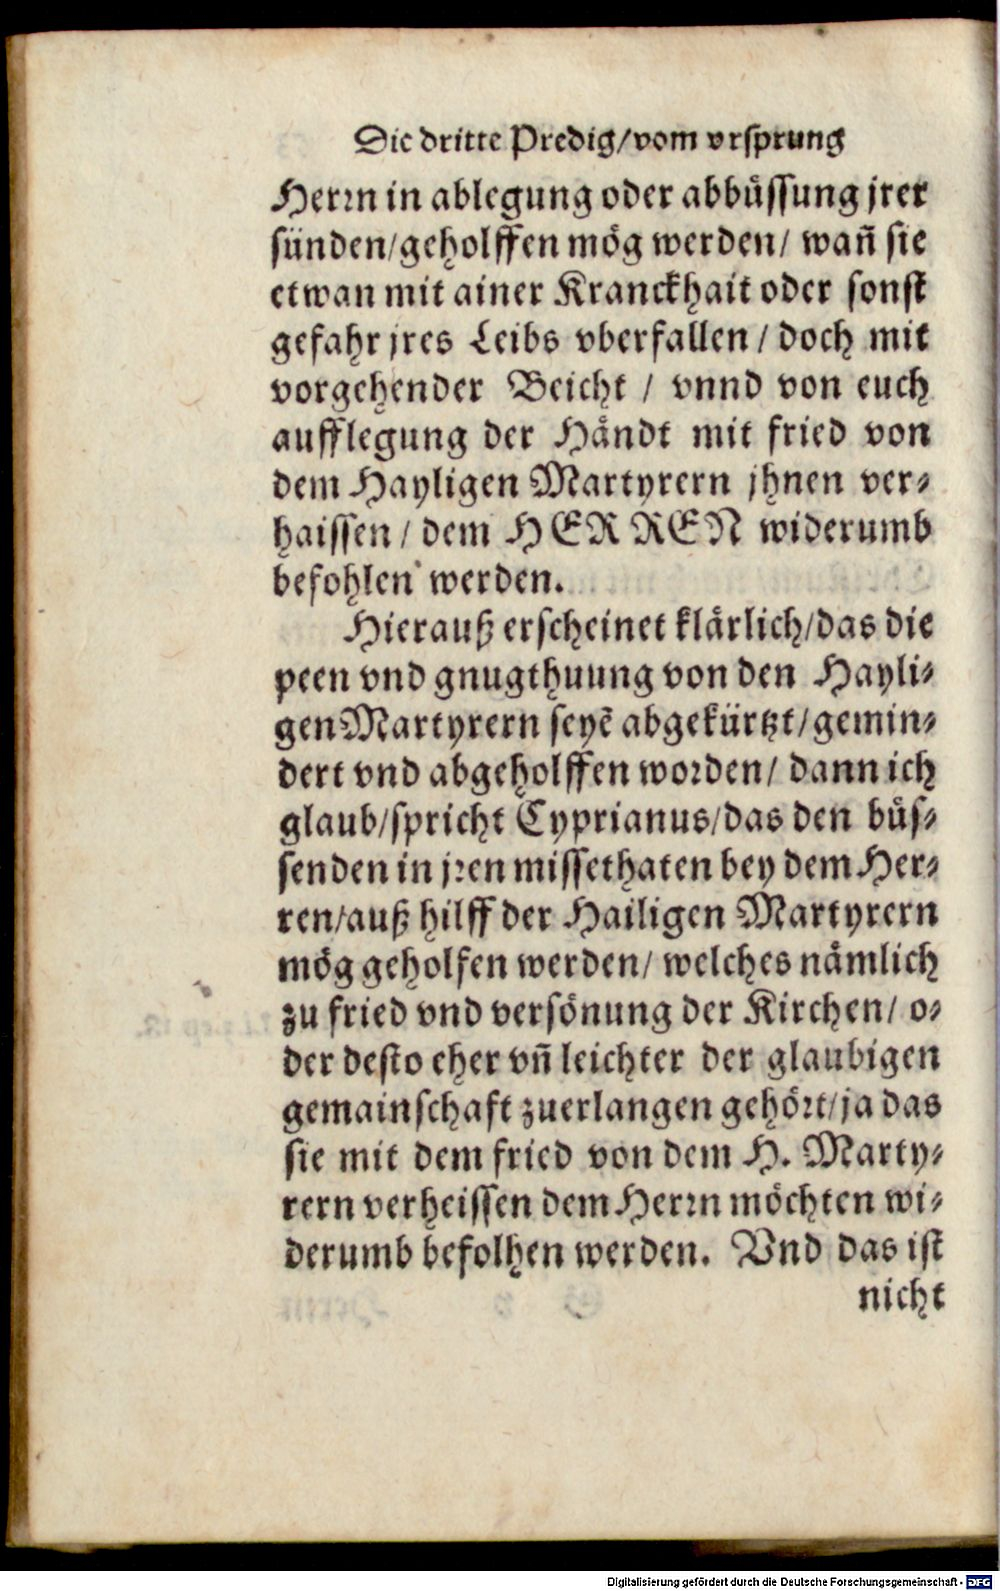 Die dritte Predig/vom vrsprung
Herrn in ablegung oder abbüssung jrer
sünden/geholffen mög werden/ wañ sie
etwan mit ainer Kranckhait oder sonst
gefahr jres Leibs vberfallen / doch mit
vorgehender Beicht / vnnd von euch
aufflegung der Händt mit fried von
dem Hayligen Martyrern jhnen ver-
haissen / dem HERREN widerumb
befohlen werden.
Hierauß erscheinet klärlich/das die
peen vnd gnugthuung von den Hayli-
gen Martyrern seyẽ abgekürtzt/gemin-
dert vnd abgeholffen worden/ dann ich
glaub/spricht Cyprianus/das den büs-
senden in jren missethaten bey dem Her-
ren/auß hilff der Hailigen Martyrern
mög geholfen werden/ welches nämlich
zu fried vnd versönung der Kirchen/ o-
der desto eher vñ leichter der glaubigen
gemainschaft zuerlangen gehört/ja das
sie mit dem fried von dem H. Marty-
rern verheissen dem Herrn möchten wi-
derumb befolhen werden. Vnd das ist
nicht
Digitalisierung gefördert durch die Deutsche Forschungsgemeinschaft - DFG